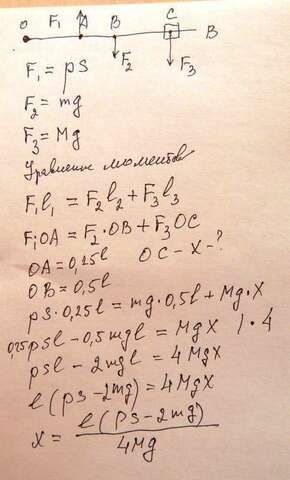 O F₁ A B C B
F₂ F₃
F₁ = pS
F₂ = mg
F₃ = Mg
Уравнение моментов
F₁l₁ = F₂l₂ + F₃l₃
F₁OA = F₂·OB + F₃OC
OA = 0,25l OC - X - ?
OB = 0,5l
pS·0,25l = mg·0,5l + Mg·X
0,25pSl - 0,5mgl = MgX |·4
pSl - 2mgl = 4MgX
l(pS - 2mg) = 4MgX
x = l(pS - 2mg) / 4Mg